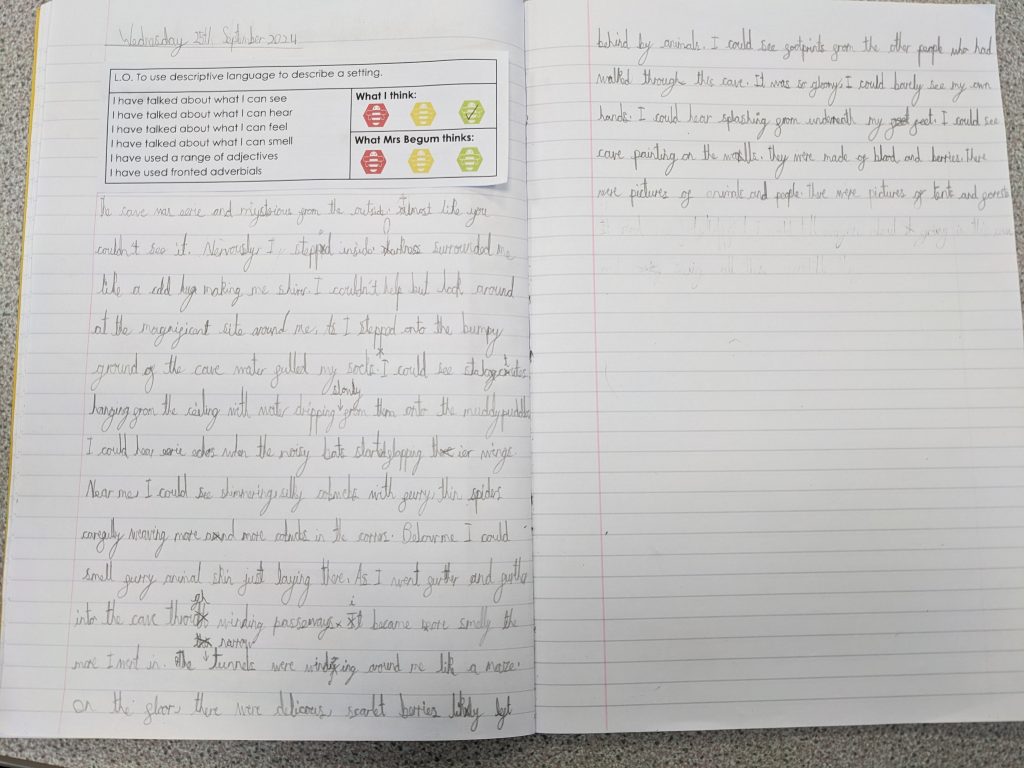 Wednesday 25th September 2024
L.O. To use descriptive language to describe a setting.
I have talked about what I can see
I have talked about what I can hear
I have talked about what I can feel
I have talked about what I can smell
I have used a range of adjectives
I have used fronted adverbials
What I think:
What Mrs Begum thinks:
The cave was eerie and mystirious from the outside. almost like you
couldn't see it. Nervously, I stepped inside. darkness surrounded me
like a odd hug making me shiver. I couldn't help but look around
at the magnificant site around me. As I stepped onto the bumpy
ground of the cave water pulled my socks. I could see
hanging from the ceiling with water dripping slowly from them onto the muddy puddles
I could hear eerie echos when the noisy bats started flapping wings.
Near me, I could see shimmering, silky cobwebs with furry, thin spiders
carefully weaving more and more cobwebs in the corners. Below me I could
smell furry animal skin just laying there. As I went further and further
into the cave through winding passeways it became more smelly the
more I went in. The narrow tunnels were winding around me like a maze.
On the floor, there were delicious, scarlet berries likely left
behind by animals. I could see footprints from the other people who had
walked through this cave. It was so gloomy, I could barely see my own
hands. I could hear splashing from underneath my feet. I could see
cave painting on the walls. they were made of blood and berries. There
were pictures of animals and people. There were pictures of tents and forests